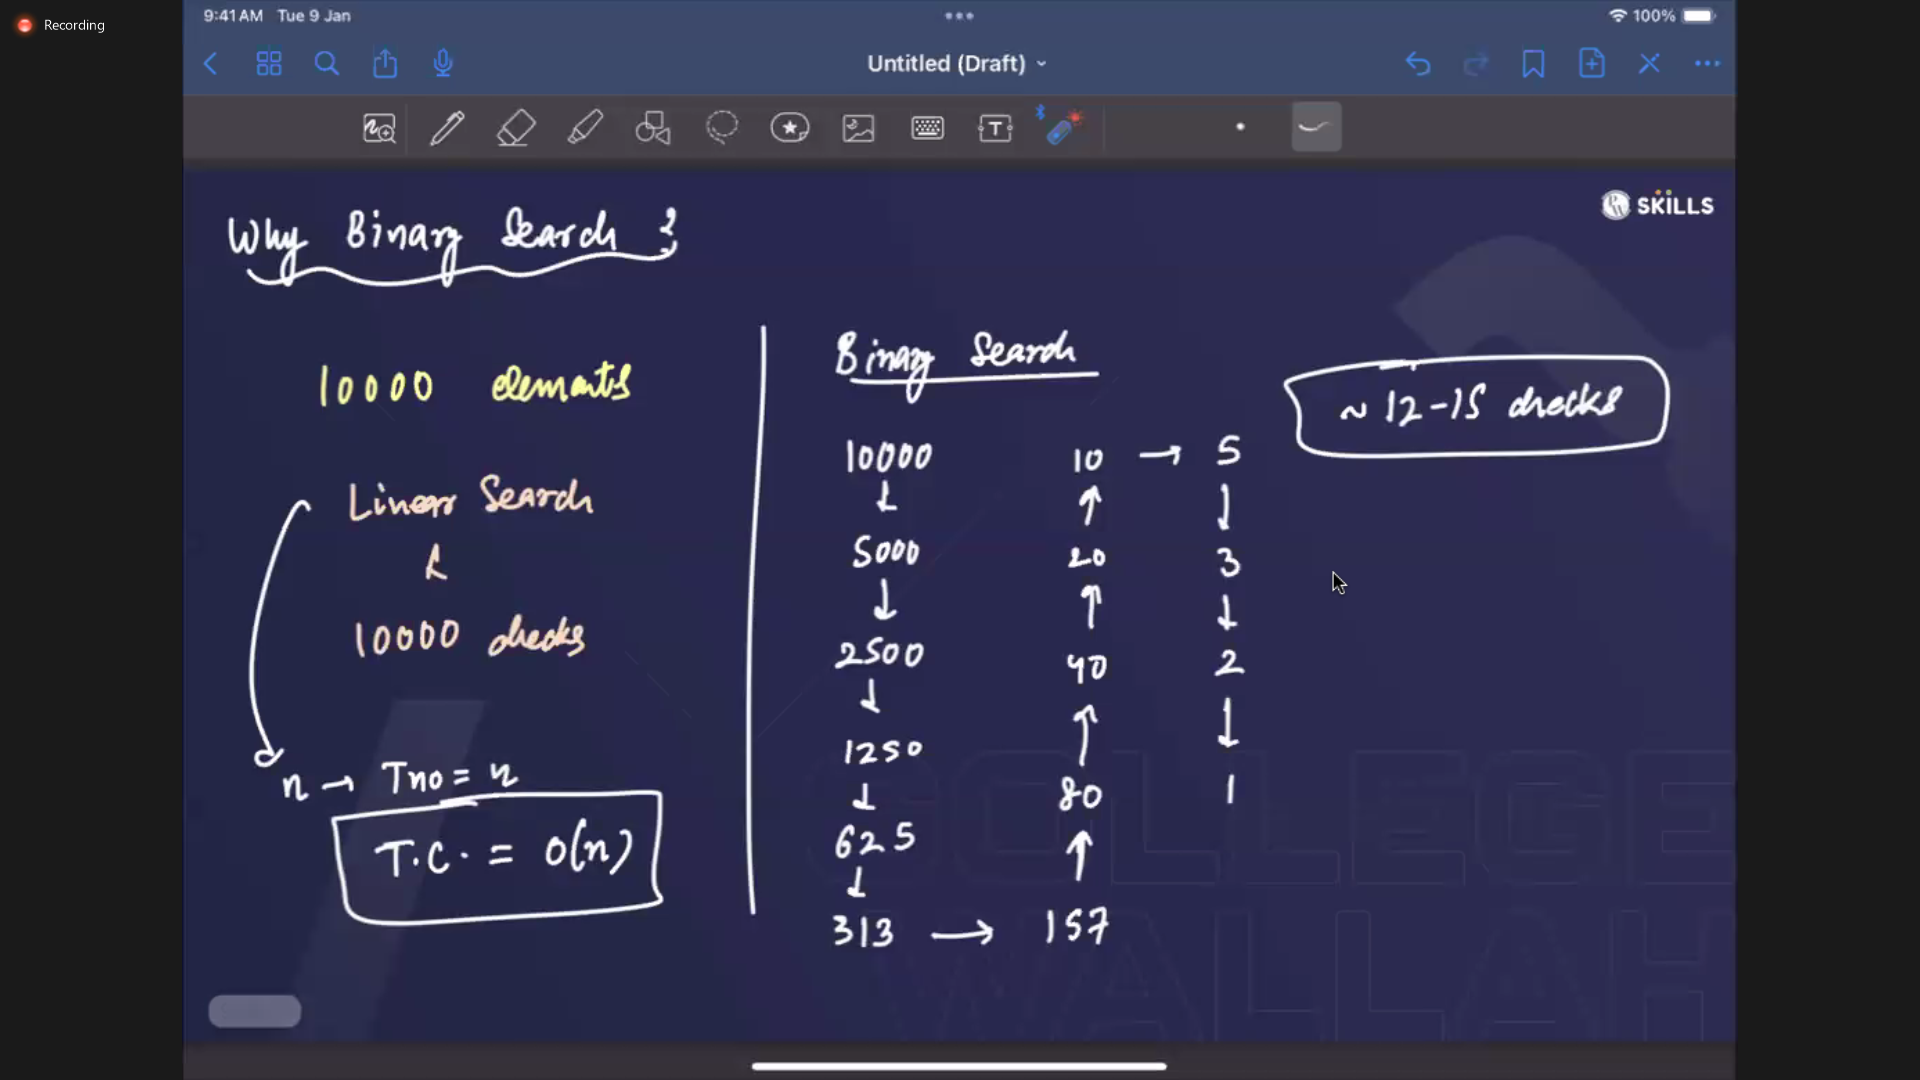 Recording
9:41 AM Tue 9 Jan
100%
Untitled (Draft)
T
SKILLS
Why Binary Search ?
10000 elements
Linear Search
↓
10000 checks
n → Tno = n
T.C. = O(n)
Binary Search
10000
↓
5000
↓
2500
↓
1250
↓
625
↓
313 → 157
↑
80
↑
40
↑
20
↑
10 → 5
↓
3
↓
2
↓
1
~ 12-15 checks
COLLEGE
WALLAH